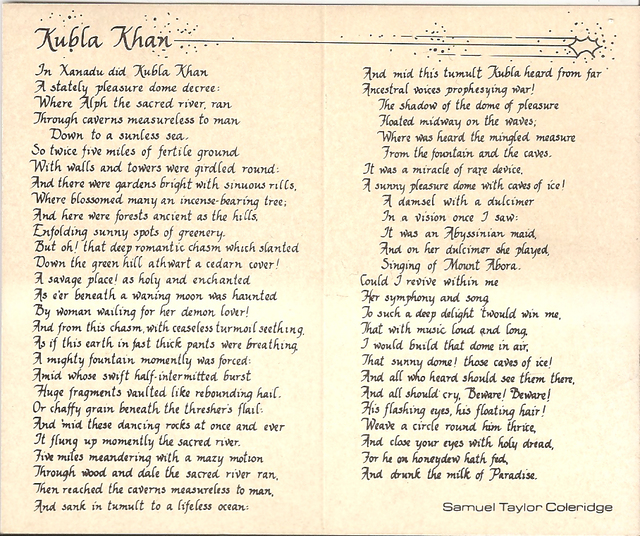 Kubla Khan
In Xanadu did Kubla Khan
A stately pleasure dome decree:
Where Alph the sacred river, ran
Through caverns measureless to man
Down to a sunless sea.
So twice five miles of fertile ground
With walls and towers were girdled round:
And there were gardens bright with sinuous rills,
Where blossomed many an incense-bearing tree;
And here were forests ancient as the hills,
Enfolding sunny spots of greenery.
But oh! that deep romantic chasm which slanted
Down the green hill athwart a cedarn cover!
A savage place! as holy and enchanted
As e'er beneath a waning moon was haunted
By woman wailing for her demon lover!
And from this chasm, with ceaseless turmoil seething,
As if this earth in fast thick pants were breathing
A mighty fountain momently was forced:
Amid whose swift half-intermitted burst
Huge fragments vaulted like rebounding hail.
Or chaffy grain beneath the thresher's flail:
And 'mid these dancing rocks at once and ever
It flung up momently the sacred river.
Five miles meandering with a mazy motion
Through wood and dale the sacred river ran,
Then reached the caverns measureless to man,
And sank in tumult to a lifeless ocean:
And mid this tumult Kubla heard from far
Ancestral voices prophesying war!
The shadow of the dome of pleasure
Floated midway on the waves;
Where was heard the mingled measure
From the fountain and the caves.
It was a miracle of rare device,
A sunny pleasure dome with caves of ice!
A damsel with a dulcimer
In a vision once I saw:
It was an Abyssinian maid,
And on her dulcimer she played,
Singing of Mount Abora.
Could I revive within me
Her symphony and song
To such a deep delight 'twould win me,
That with music loud and long,
I would build that dome in air,
That sunny dome! those caves of ice!
And all who heard should see them there,
And all should cry, Beware! Beware!
His flashing eyes, his floating hair!
Weave a circle round him thrice,
And close your eyes with holy dread,
For he on honeydew hath fed,
And drunk the milk of Paradise.
Samuel Taylor Coleridge